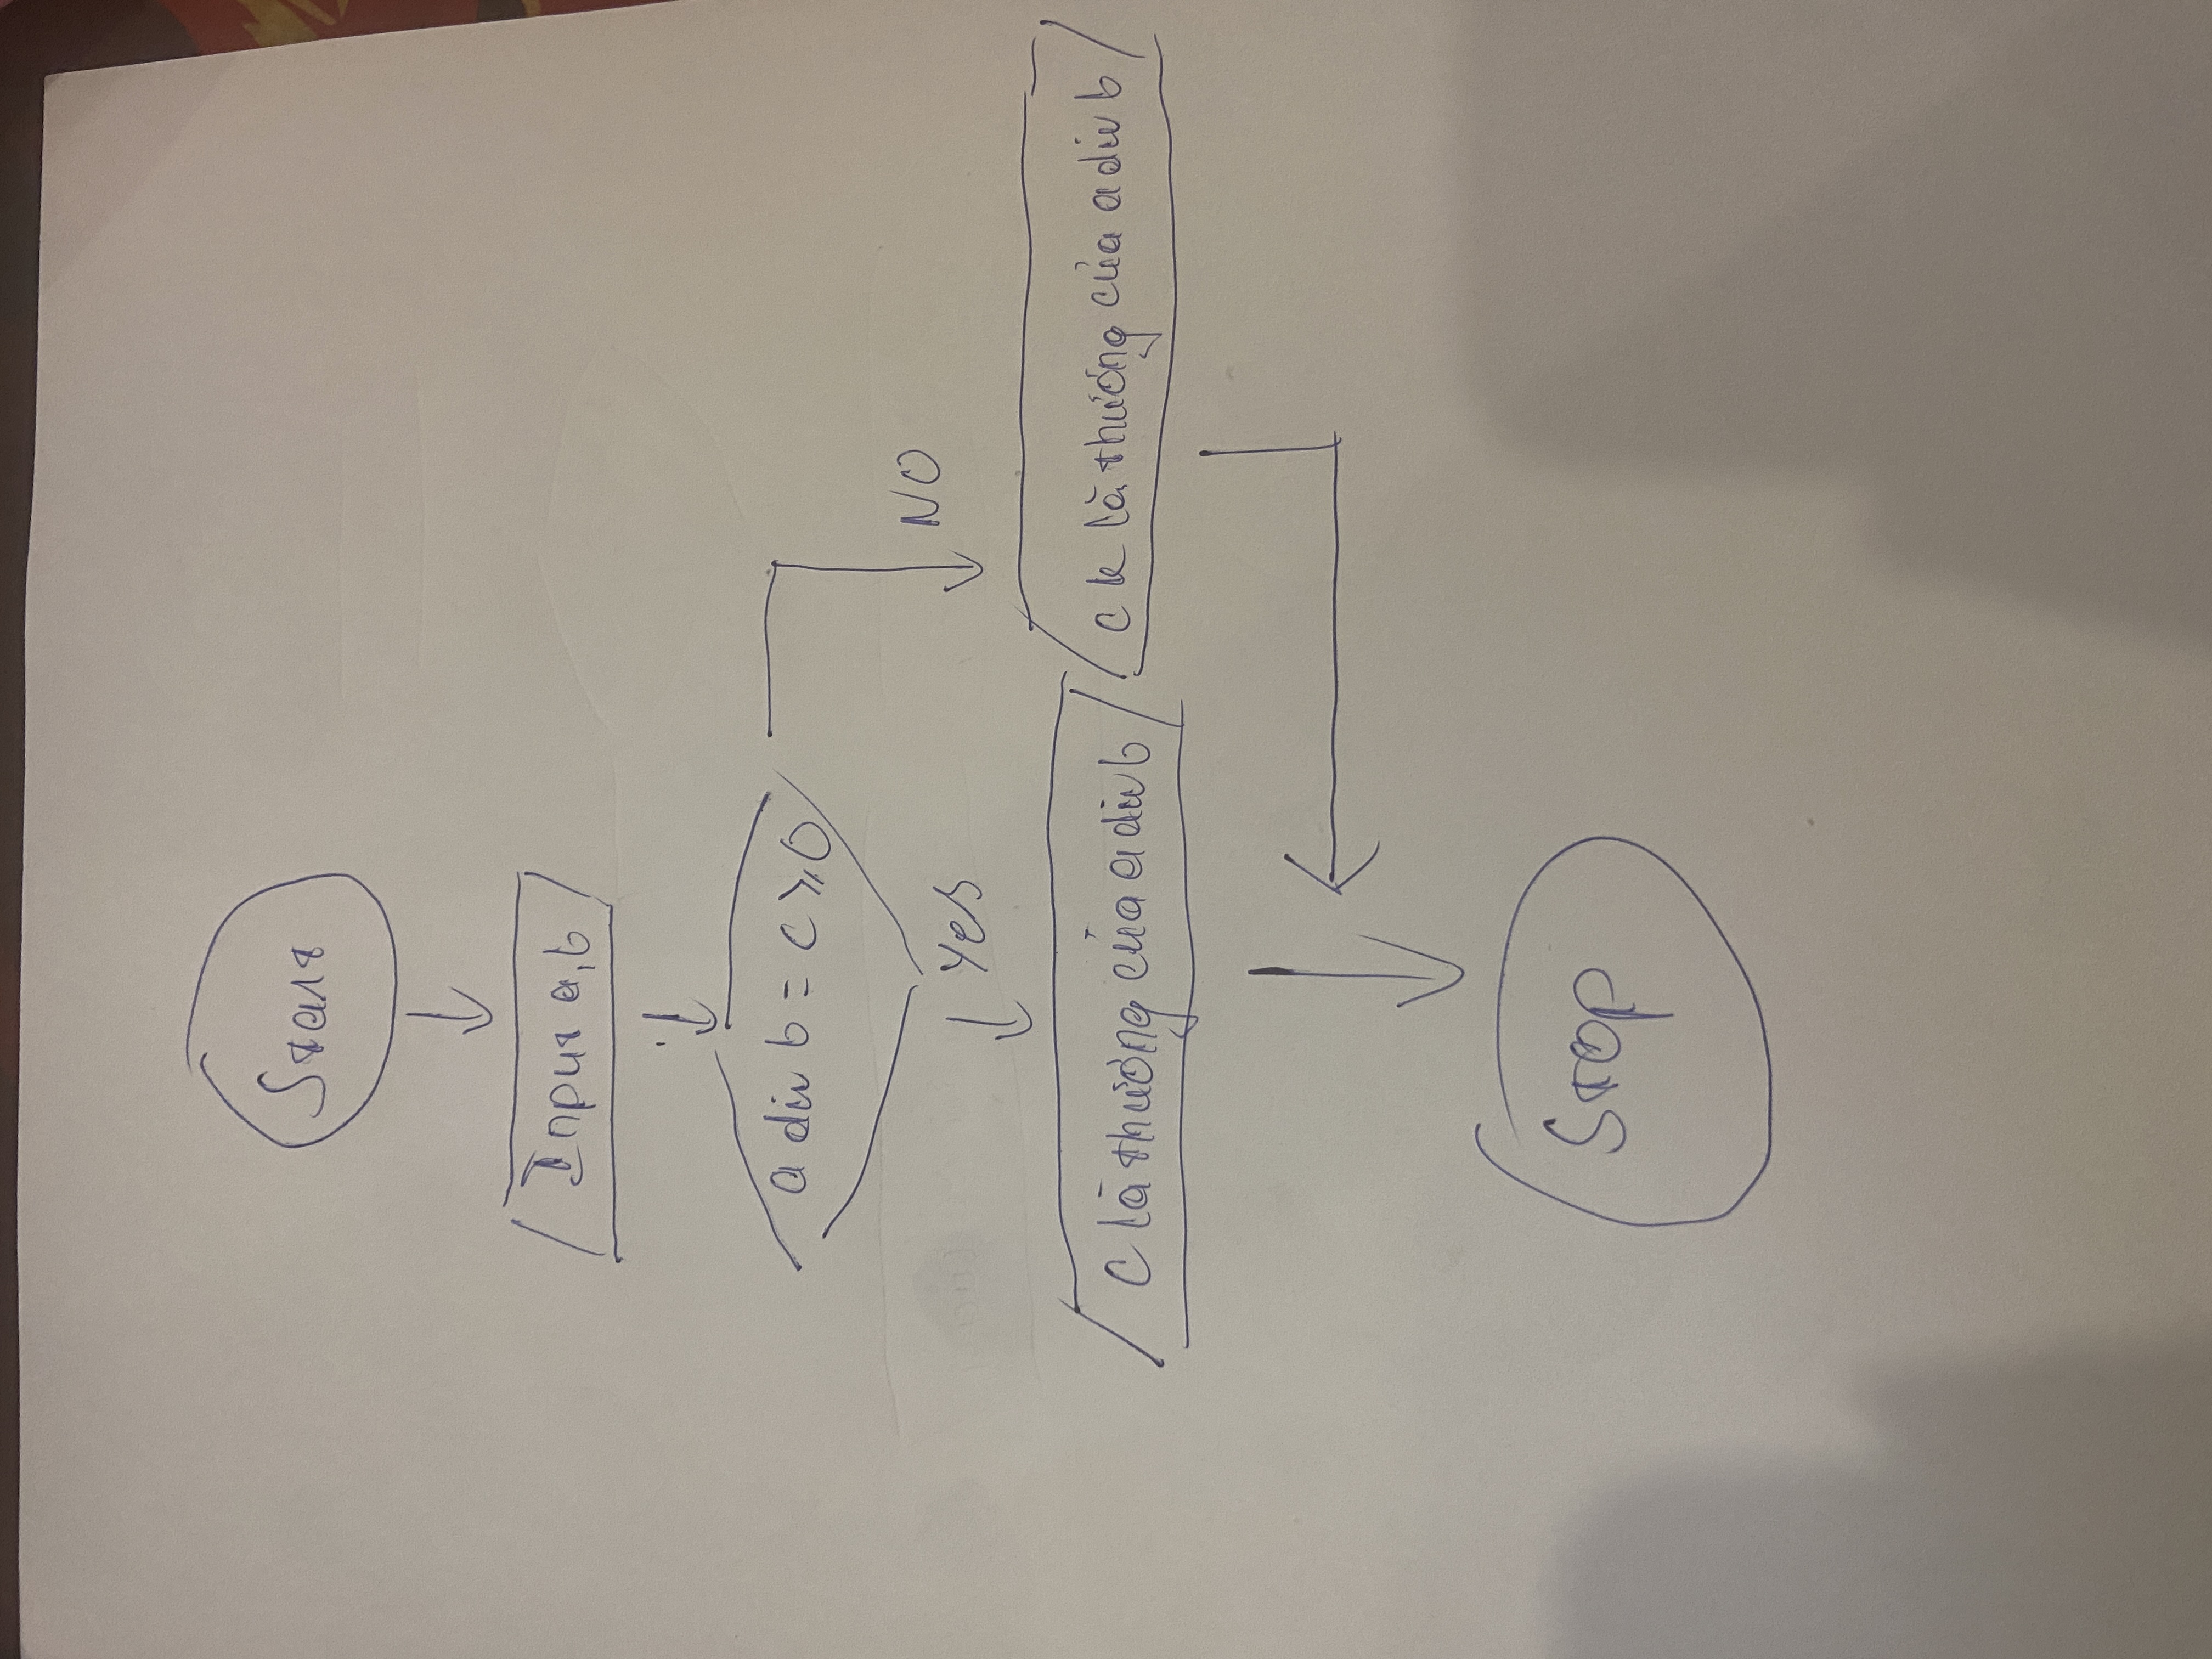 Start
Input a,b
a div b = c ⩾ 0
Yes
NO
C là thương của a div b
c k là thương của a div b
Stop